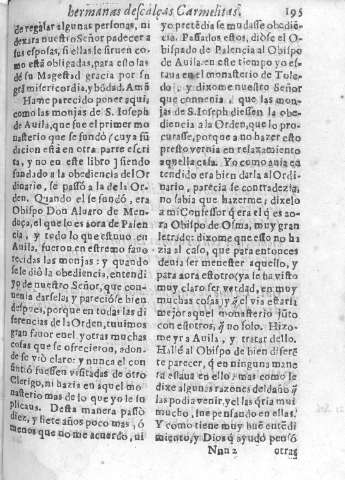 hermanas descalças Carmelitas. 195
de regalar algunas personas, ni
dexara nuestro Señor padecer a
sus esposas, si ellas le siruen co-
mo està obligadas, para esto las
dè su Magestad gracia por su
grã misericordia, y bõdad. Amẽ
Hame parecido poner aqui,
como las monjas de S. Ioseph
de Auila, que fue el primer mo
nasterio que se fundò (cuya fũ
dacion està en otra parte escri
ta, y no en este libro) siendo
fundado a la obediencia del Or
dinario, se passò a la de la Or-
den. Quando el se fundò, era
Obispo Don Aluaro de Men-
doça, el que lo es aora de Palen
cia, y todo lo que estuuo en
Auila, fueron en estremo fauo
recidas las monjas: y quando
se le diò la obediencia, entendi
yo de nuestro Señor, que con-
uenia darsela; y pareciòse bien
despues, porque en todas las di
ferencias de la Orden, tuuimos
gran fauor en el, y otras muchas
cosas que se ofrecieron, adon-
de se viò claro: y nunca el con
sintiò fuessen visitadas de otro
Clerigo, ni hazia en aquel mo
nasterio mas de lo que yo le su
plicaua. Desta manera passò
diez, y siete años poco mas, ò
menos que no me acuerdo, ni
yo pretẽdia se mudasse obedi-
ẽcia. Passados estos, diòse el O-
bispado de Palencia al Obispo
de Auila. en este tiempo yo es
taua en el monasterio de Tole-
do, y dixome nuestro Señor
que conuenia, que las mon-
jas de S. Ioseph diessen la obe-
diencia a la Orden, que lo pro-
curasse, porque a no hazer esto
presto vernia en relaxamiento
aquella casa. Yo como auia en
tendido era bien darla al Ordi-
nario, parecia se contradezia,
no sabia que hazerme; dixelo
a mi Confessor q̃ era el q̃ es ao-
ra Obispo de Osma, muy gran
letrado: dixome que esso no ha
zia al caso, que para entonces
deuia ser menester aquello, y
para aora estotro (y se ha visto
muy claro ser verdad, en muy
muchas cosas) y q̃ el via estaria
mejor aquel monasterio jũto
con estotros, q̃ no solo. Hizo-
me yr a Auila, y tratar dello.
Hallè al Obispo de bien difere
te parecer, q̃ en ninguna mane
ra estaua en ello, mas como le
dixe algunas razones del daño q̃
las podia venir, y el las q̃ria mui
mucho, fue pensando en ellas.
Y como tiene muy buẽ entẽdi
miento, y Dios q̃ ayudò pensò
Nnn 2 otras